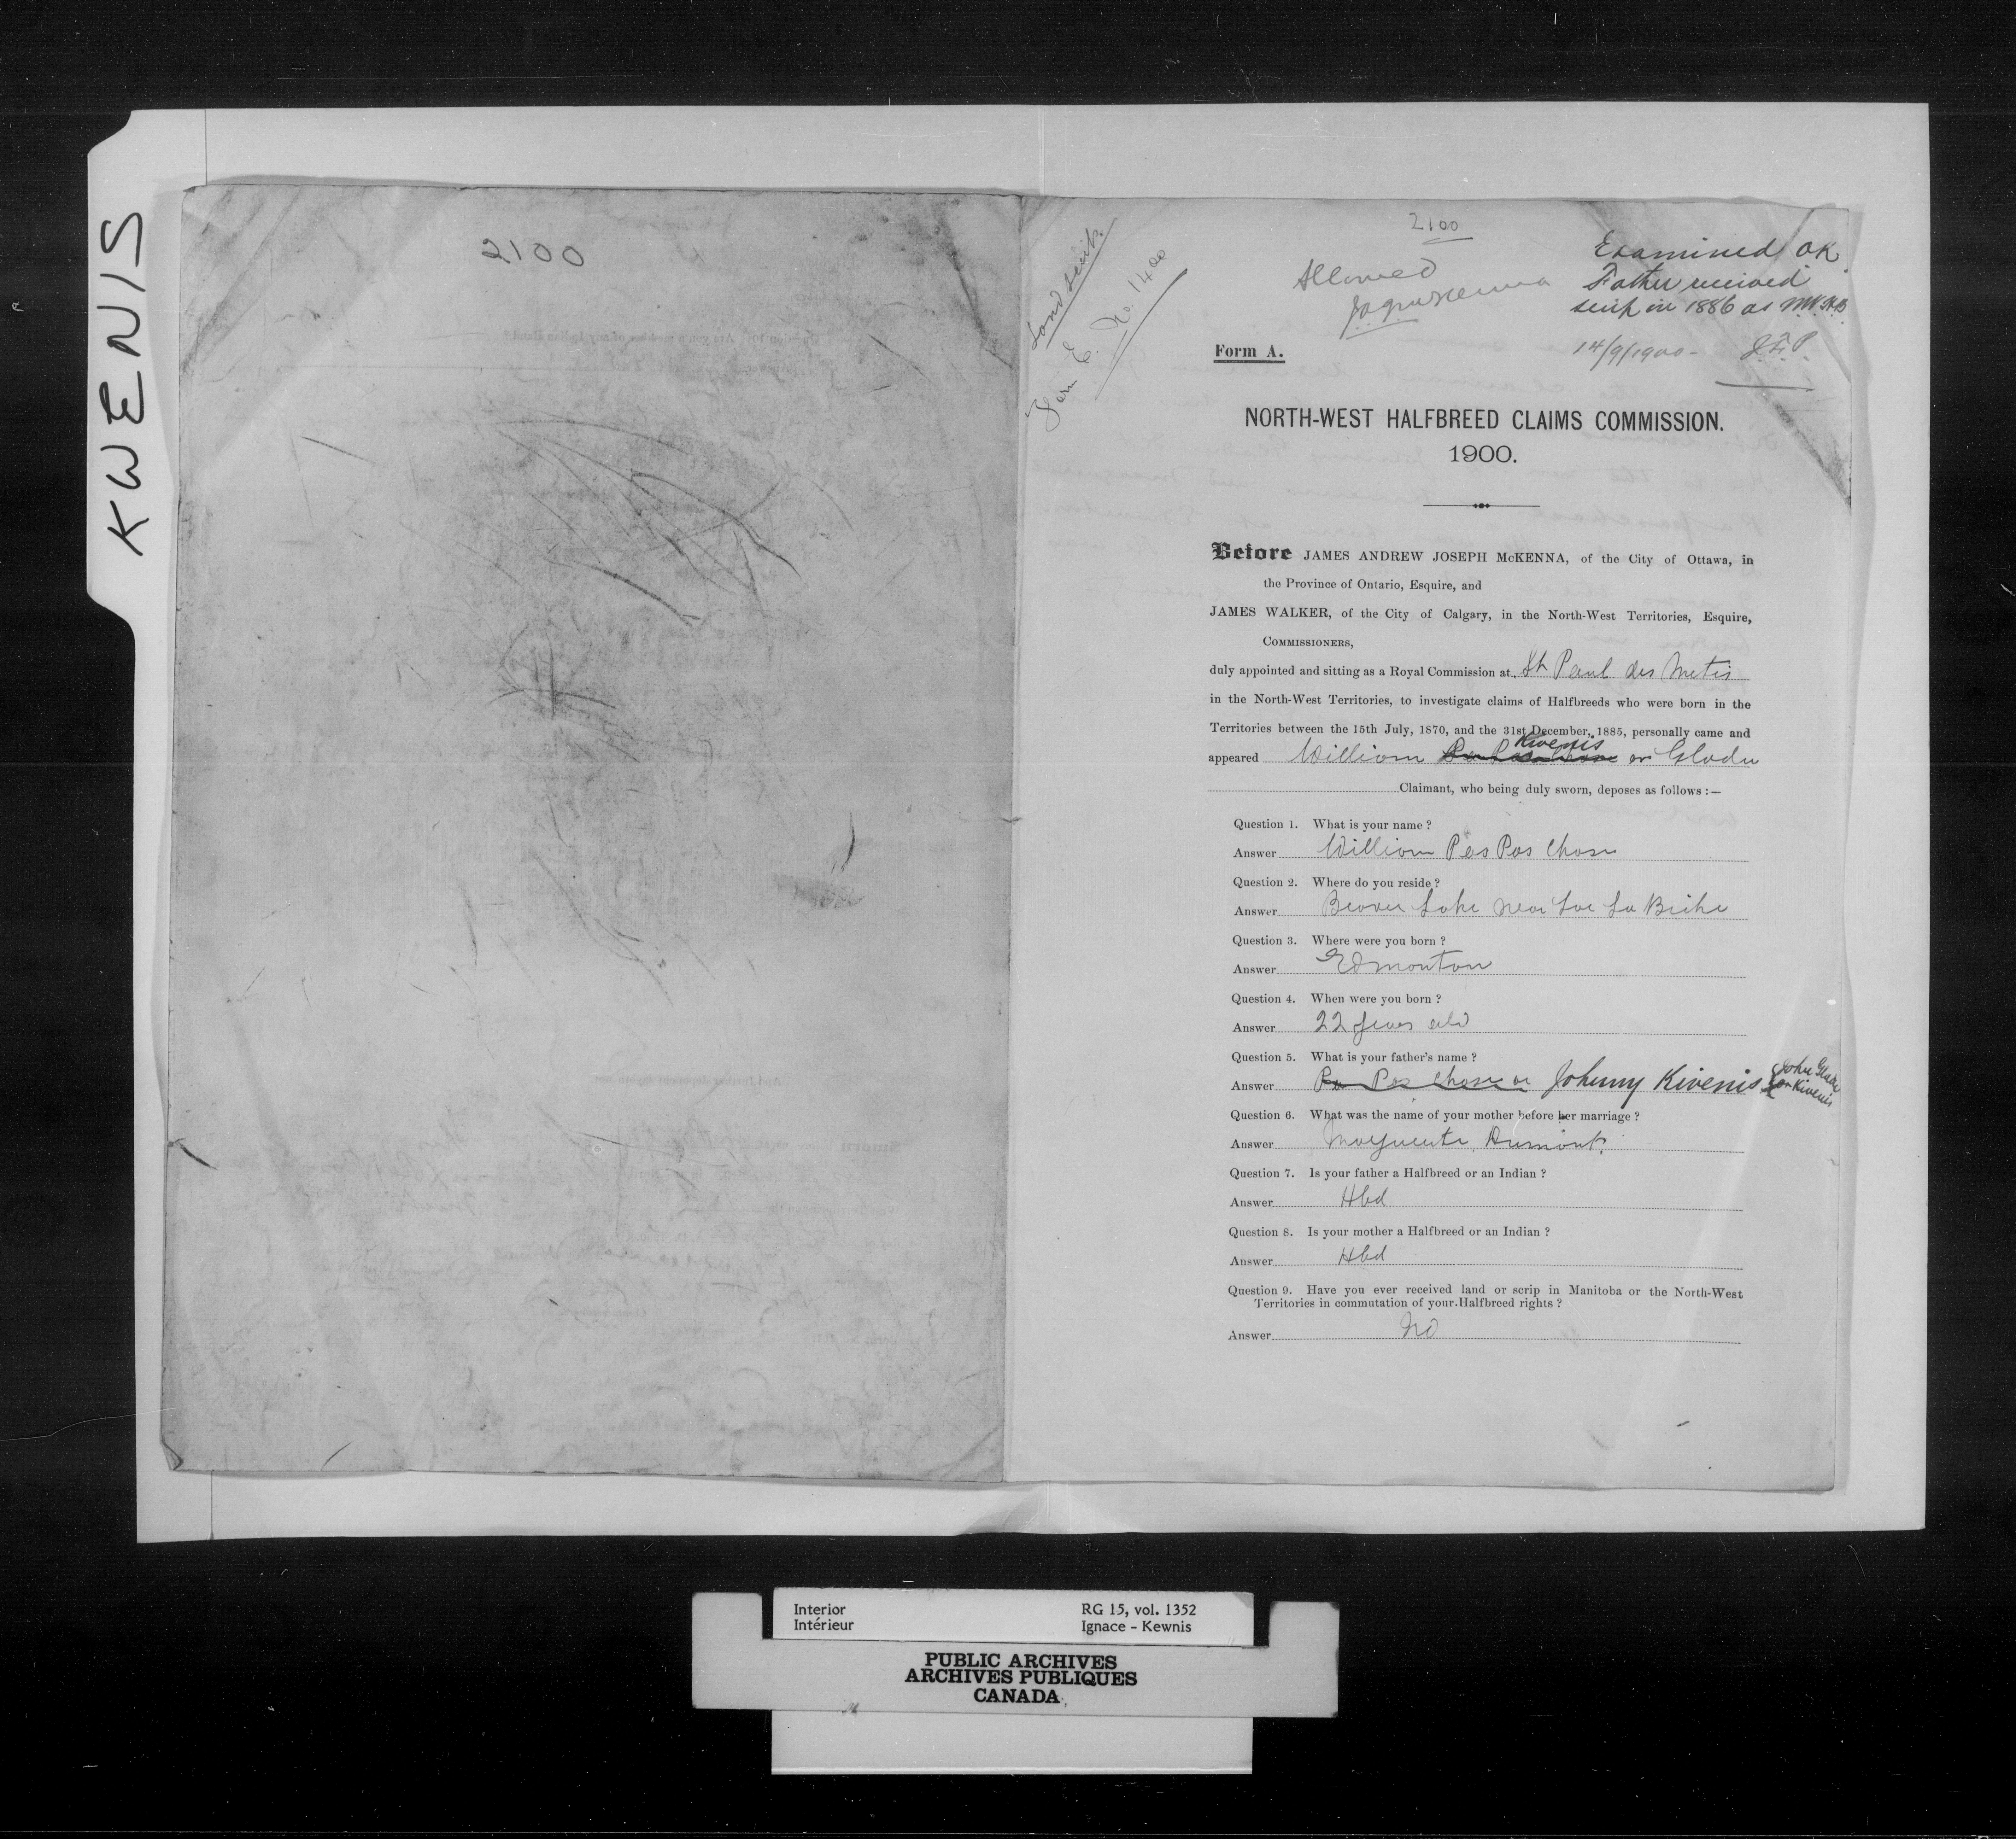 KWENIS
2100
Land Scrip.
Form E. No. 1400
2100
Allowed
JAJMcKenna
Examined OK.
Father received
scrip in 1886 as N.W.H.B
14/9/1900-
Form A.
NORTH-WEST HALFBREED CLAIMS COMMISSION.
1900.
Before JAMES ANDREW JOSEPH McKENNA, of the City of Ottawa, in
the Province of Ontario, Esquire, and
JAMES WALKER, of the City of Calgary, in the North-West Territories, Esquire,
COMMISSIONERS,
duly appointed and sitting as a Royal Commission at St Paul des Metis
in the North-West Territories, to investigate claims of Halfbreeds who were born in the
Territories between the 15th July, 1870, and the 31st December, 1885, personally came and
Kwenis
appeared William Pas Pas Chase or Gladu
Claimant, who being duly sworn, deposes as follows :—
Question 1. What is your name ?
Answer William Pas Pas Chase
Question 2. Where do you reside ?
Answer Beaver Lake near Lac La Biche
Question 3. Where were you born ?
Answer Edmonton
Question 4. When were you born ?
Answer 22 years old
Question 5. What is your father's name ?
Answer Pas Pas Chase or Johnny Kwenis
John Gladu
or Kwenis
Question 6. What was the name of your mother before her marriage ?
Answer Marguerite Dumont.
Question 7. Is your father a Halfbreed or an Indian ?
Answer Hbd
Question 8. Is your mother a Halfbreed or an Indian ?
Answer Hbd
Question 9. Have you ever received land or scrip in Manitoba or the North-West
Territories in commutation of your Halfbreed rights ?
Answer No
Interior RG 15, vol. 1352
Intérieur Ignace - Kewnis
PUBLIC ARCHIVES
ARCHIVES PUBLIQUES
CANADA